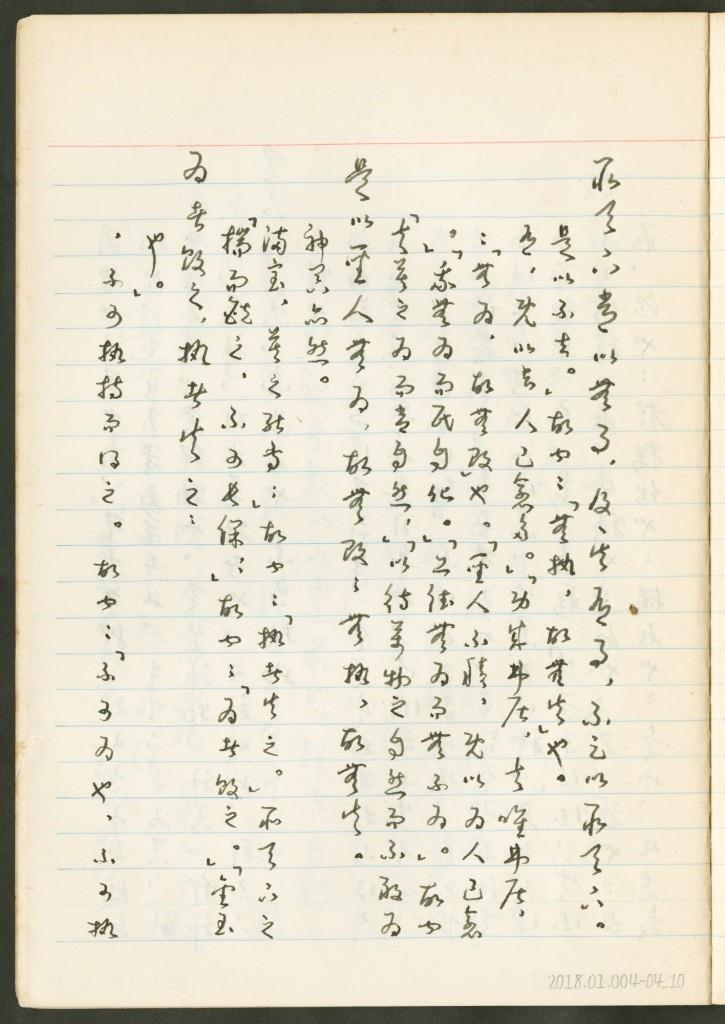 ，不可執持而得之。故曰：「不可為也，不可執
也。」
為者敗之，執者失之；
「揣而銳之，不可長保；」故曰：「為者敗之。」「金玉
滿室，莫之能守；」故曰：「執者失之。」取天下之
神器亦然。
是以聖人無為，故無敗；無執，故無失。
「夫莫之為而常自然；」「以待萬物之自然而不敢為
。」「我無為而民自化。」「上德無為而無不為。」故曰
：「無為，故無敗」也。「聖人不積，既以為人己愈
有，既以與人己愈多。」「功成弗居，夫唯弗居，
是以不去。」故曰：「無執，故無失」也。
取天下常以無事，及其有事，不足以取天下。
2018.01.004-04_10